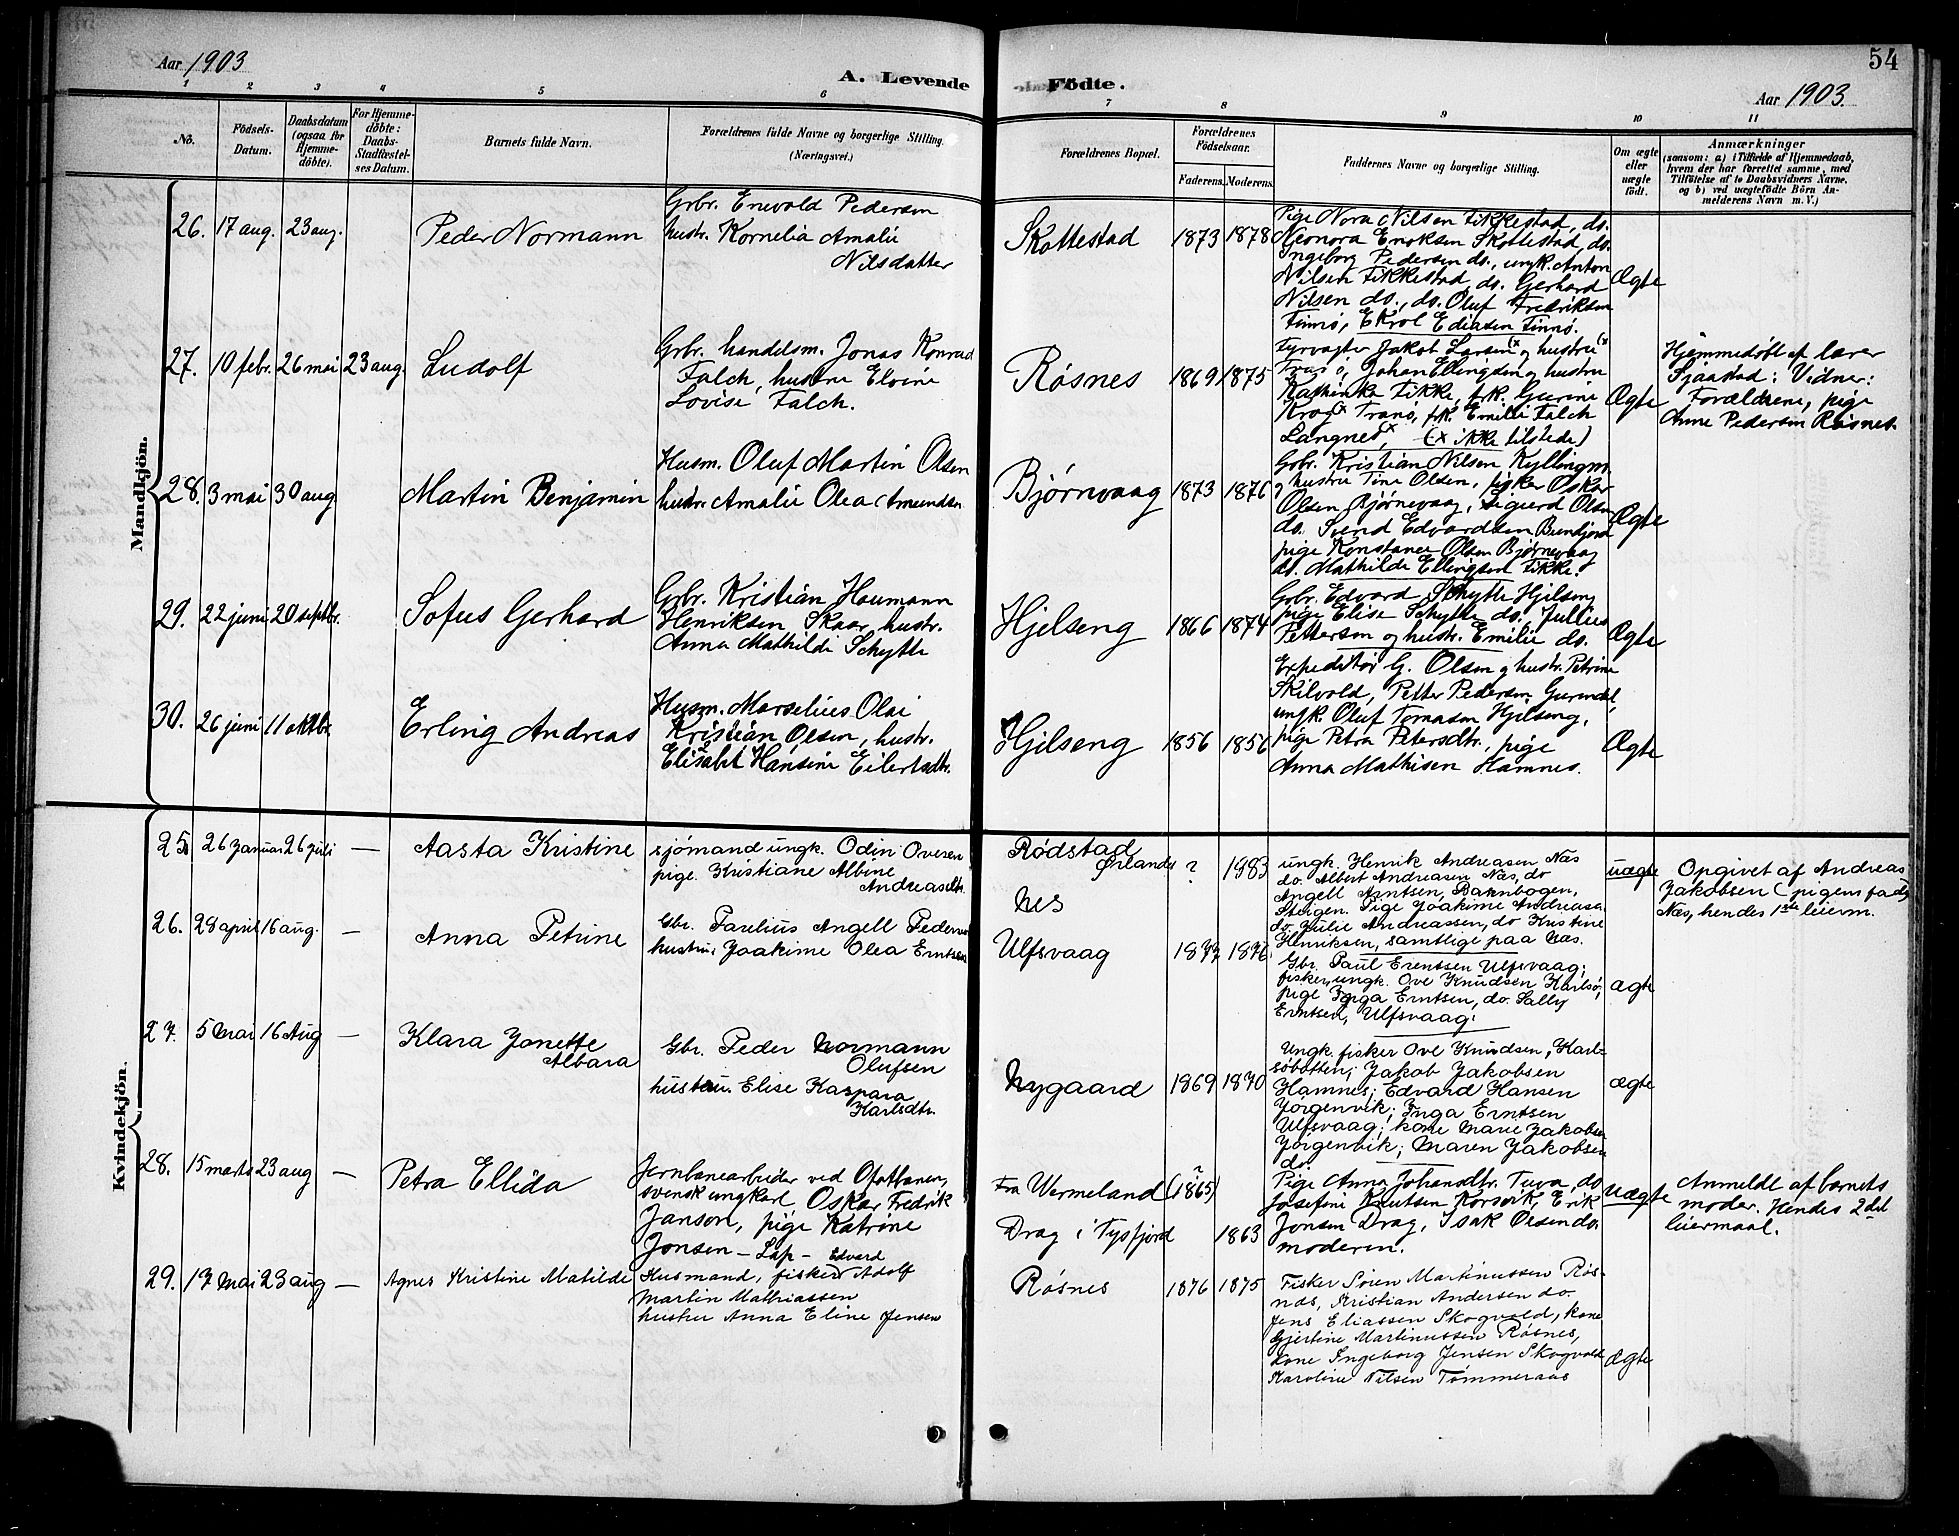 54
Aar 1903
A. Levende Födte.
Aar 1903
1 2 3 4 5 6 7 8 9 10 11
No.
Födsels-Datum.
Daabsdatum (ogsaa for Hjemme-döbte).
For Hjemme-döbte: Daabs-Stadfæstel-ses Datum.
Barnets fulde Navn.
Forældrenes fulde Navne og borgerlige Stilling.
(Næringsvei.)
Forældrenes Bopæl.
Forældrenes Födselsaar.
Faderens. Moderens.
Faddernes Navne og borgerlige Stilling.
Om ægte eller uægte födt.
Anmærkninger
(saasom: a) i Tilfælde af Hjemmedaab,
hvem der har forrettet samme, med
Tilföielse af to Daabsvidners Navne,
og b) ved uægtefödte Börn An-
melderens Navn m. V.)
Mandkjön.
26. 17 aug. 23 aug. Peder Normann
Grbr. Enevold Pedersen
hustr. Kornelia Amalie
Nilsdatter
Skottestad 1873 1878
Pige Nora Nilsen Fikkestad, do.
Neonora Enoksen Skottestad, do.
Ingeborg Pedersen do., ungk. Anton
Nilsen Fikkestad, do. Gerhard
Nilsen do., do. Oluf Fredriksen
Finnö, Ekrol Ediasen Finnö.
Ægte
27. 10 febr. 26 mai 23 aug. Ludolf
Grbr. handelsm. Jonas Konrad
Falch, hustru Elvine
Lovise Falch.
Røsnes 1869 1875
Fyrvagter Jakob Larsen (x og hustru (x
Tranö, Johan Ellingsen og hustru
Kathinka Fikke, frk. Gurine
Krog x Tranö, frk. Emilie Falch
Langnes x, (x ikke tilstede)
Ægte
Hjemmedøbt af lærer
Sjaastad: Vidner:
Forældrene, pige
Anne Pedersen Røsnes.
28. 3 mai 30 aug Martin Benjamin
Husm. Oluf Martin Olsen
hustr. Amalie Olea Amundsen
Bjørnvaag 1873 1876
Grbr. Kristian Nilsen Kyllingm.
og hustru Tine Olsen, fisker Oskar
Olsen Bjørnevaag, Sigurd Olsen
do. Svend Edvardsen Bunfjord
pige Konstance Olsen Bjørnevaag
do. Mathilde Ellingsen Fikke.
Ægte
29. 22 juni 20 septbr. Sofus Gerhard
Grbr. Kristian Haumann
Henriksen Skaar, hustr.
Anna Mathilde Schytte
Hjelseng 1866 1874
Grbr. Edvard Schytte Hjelseng
pige Elise Schytte do. Jullius
Pettersen og hustr. Emilie do.
Ægte
30. 26 juni 11 oktbr. Erling Andreas
Husm. Marselius Olai
Kristian Olsen, hustr.
Elisabet Hansine Eilertsdtr.
Hjelseng 1856 1856
Expeditör G. Olsen og hustr. Petrine
Skilvold, Petter Pedersen Gurendal,
ungk. Oluf Tomasen Hjelseng,
pige Petra Petersdtr., pige
Anna Mathisen Hamnes.
Ægte
Kvindekjön.
25 26 Januar 26 Juli — Aasta Kristine
sjömand ungk. Odin Ovesen
pige. Kristiane Albine
Andreasdtr.
Rödstad
Ørlandet ? 1983
Nes
ungk. Henrik Andreasen Næs
do. Albert Andreasen Næs, do
Angell Arntsen, Baknbogen,
Steigen. Pige Joakime Andreasen
do Julie Andreassen, do Kristine
Henriksen, samtlige paa Næs.
uægte
Opgivet af Andreas
Jakobsen (pigens fader)
Næs, hendes 1ste leierm.
26. 28 april 16 aug. — Anna Petrine
Gbr. Parelius Angell Pedersen
hustru. Joakime Olea Erntsen
Ulfsvaag 1877 1876
Gbr. Paul Erentsen Ulfsvaag;
fisker, ungk. Ove Knudsen Karlsö,
pige Inga Erntsen, do. Sally
Erntsen, Ulfsvaag.
ægte
27. 5 Mai 16 Aug — Klara Jonette
Albara
Gbr. Peder Normann
Olufsen
hustru. Elise Kaspara
Karlsdtr.
Nygaard 1869 1870
Ungk. fisker Ove Knudsen, Karl-
söbotten; Jakob Jakobsen
Hamnes; Edvard Hansen
Jörgenvik; Inga Erntsen
Ulfsvaag; kone Marie Jakobsen
Jörgenvik; Maren Jakobsen
do
ægte
28. 15 marts 23 aug — Petra Ellida
Jernbanearbeider ved Ofotbanen,
svensk ungkarl, Oskar Fredrik
Janson, pige Katrine
Jonsen — Lap —
Fra Wermeland (1865)
Drag i Tysfjord 1863
Pige Anna Johansdtr. Tuva, do
Josefine Knutsen Korsvik, Erik
Jonsen Drag, Isak Olsen do.
moderen.
uægte
Anmeldt af barnets
moder. Hendes 2det
leiermaal.
29. 17 Mai 23 aug — Agnes Kristine Matilde
Husmand, fisker Edvard Adolf
Martin Mathiassen
hustru Anna Eline Jensen
Røsnes 1876 1875
Fisker Søren Martinussen Røs-
nes, Kristian Andersen do.
Jens Eliassen Skogvold, kone
Gjertine Martinussen Røsnes,
kone Ingeborg Jensen Skogvold
Karoline Nilsen Tømmeraas
ægte